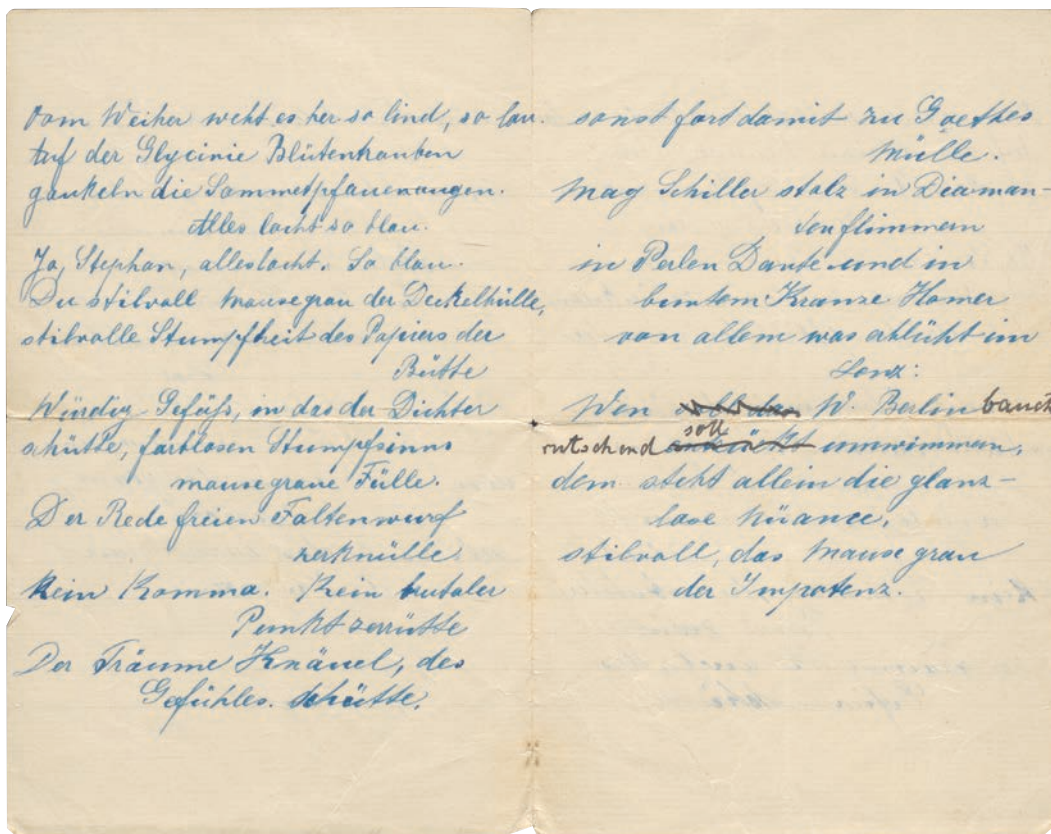 vom Weiher weht es her so lind, so lau.
Auf der Glycinie Blütenhauben
gaukeln die Sammetpfauenaugen.
Alles lacht so blau.
Ja, Stephan, alles lacht. So blau.
Du stilvoll Mausegrau der Deckelhülle,
stilvolle Stumpfheit des Papiers der
Bütte
Würdig Gefäß, in das der Dichter
schütte, farblosen Stumpfsinns
mausegraue Fülle.
Der Rede freien Faltenwurf
zerknülle.
Kein Komma. Kein brutaler
Punkt zerrütte
Der Träume Knäuel, des
Gefühles. Schütte.
sonst fort damit zu Goethes
Mülle.
Mag Schiller stolz in Diaman-
tenflimmern
in Perlen Dante und in
buntem Kranze Homer
von allem was erblüht im
Lenz:
Wen W. Berlin bauch
rutschend soll umwimmern,
dem steht allein die glanz-
lose Nüance,
stilvoll, das Mausegrau
der Impotenz.